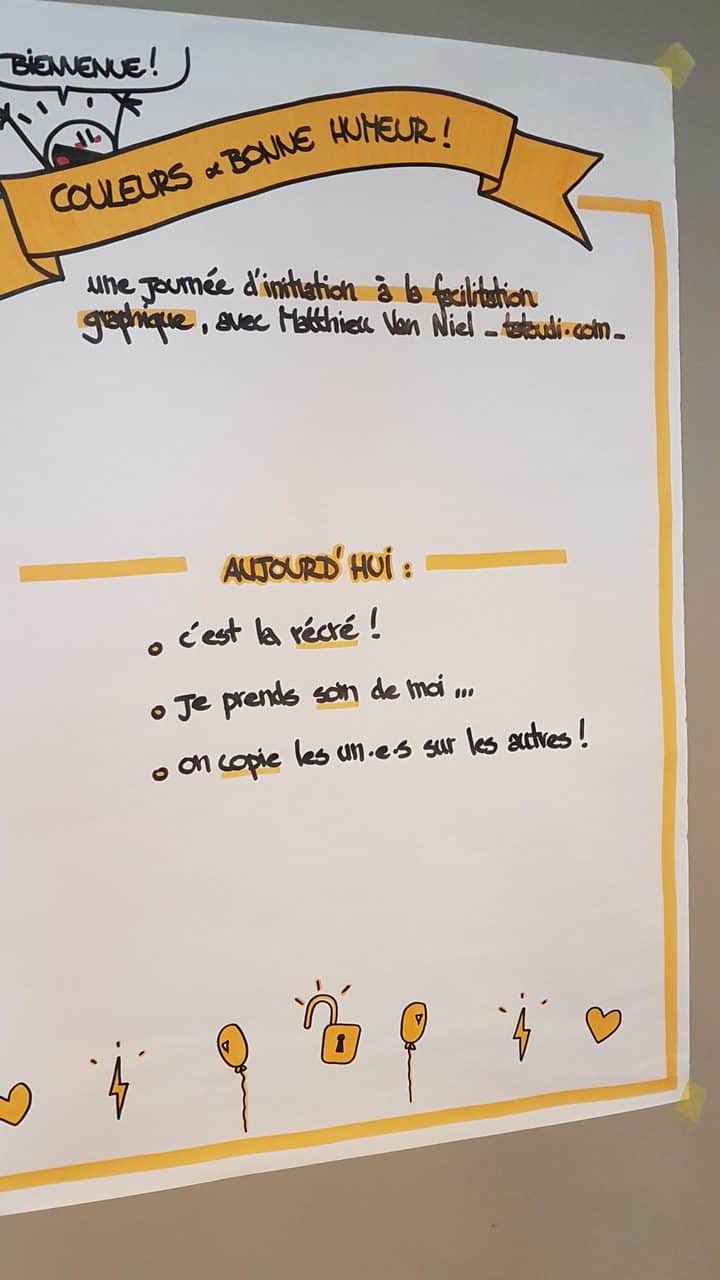 BIENVENUE !
COULEURS & BONNE HUMEUR !
une journée d'initiation à la facilitation
graphique, avec Matthieu Van Niel - tataudi.com -
AUJOURD'HUI :
c'est la récré !
Je prends soin de moi ...
on copie les un·e·s sur les autres !